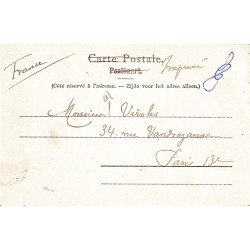 Carte Postale,
Postkaart.
Imprimé
France
(Côté réservé à l'adresse. — Zijde voor het adres alleen.)
Monsieur Virols
34, rue Vandrezanne
Paris 13e